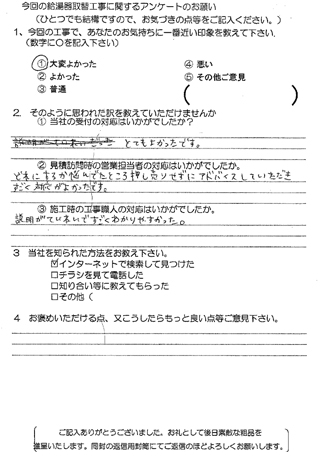 今回の給湯器取替工事に関するアンケートのお願い
（ひとつでも結構ですので、お気づきの点等をご記入ください。）
1、今回の工事で、あなたのお気持ちに一番近い印象を教えて下さい。
（数字に〇を記入下さい）
① 大変よかった ④ 悪い
② よかった ⑤ その他ご意見
③ 普通 （ ）
2. そのように思われた訳を教えていただけませんか
① 当社の受付の対応はいかがでしたか？
とてもよかったです。
② 見積訪問時の営業担当者の対応はいかがでしたか。
どれにするか悩んでたところ押し売りせずにアドバイスしていただき
すごく対応がよかったです。
③ 施工時の工事職人の対応はいかがでしたか。
説明がていねいですごくわかりやすかった。
3 当社を知られた方法をお教え下さい。
☑インターネットで検索して見つけた
□チラシを見て電話した
□知り合い等に教えてもらった
□その他（
4 お褒めいただける点、又こうしたらもっと良い点等ご意見下さい。
ご記入ありがとうございました。お礼として後日素敵な粗品を
進呈いたします。同封の返信用封筒にてご返信のほどよろしくお願いします。